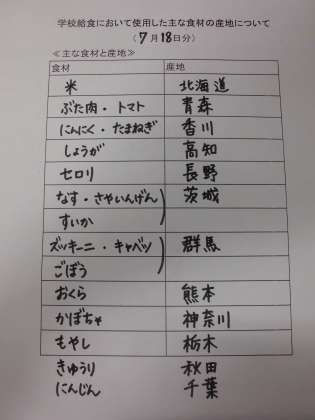 学校給食において使用した主な食材の産地について
（7月18日分）
≪主な食材と産地≫
食材 産地
米 北海道
ぶた肉・トマト 青森
にんにく・たまねぎ 香川
しょうが 高知
セロリ 長野
なす・さやいんげん 茨城
すいか
ズッキーニ・キャベツ 群馬
ごぼう
おくら 熊本
かぼちゃ 神奈川
もやし 栃木
きゅうり 秋田
にんじん 千葉